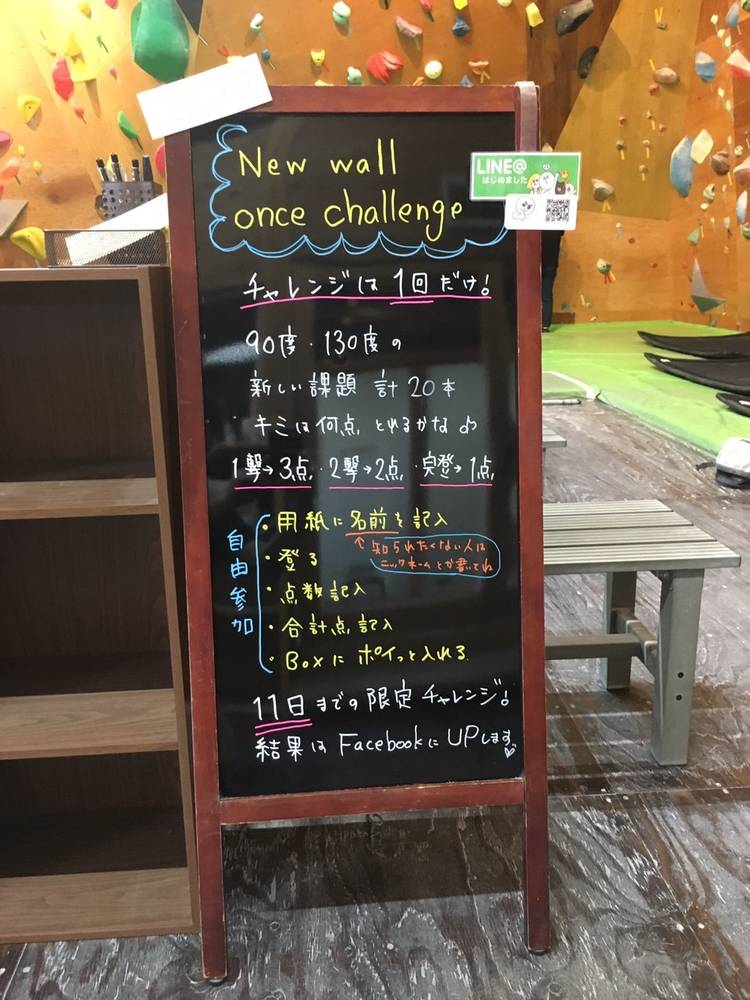 New wall
once challenge
LINE@
はじめました
チャレンジは1回だけ!
90度・130度の
新しい課題 計20本
キミは何点とれるかな♪
1撃→3点・2撃→2点・完登→1点
自由参加
・用紙に名前を記入
↑知られたくない人は
ニックネームとか書いてね
・登る
・点数記入
・合計点記入
・Boxにポイっと入れる
11日までの限定チャレンジ!
結果はFacebookにUPします♡